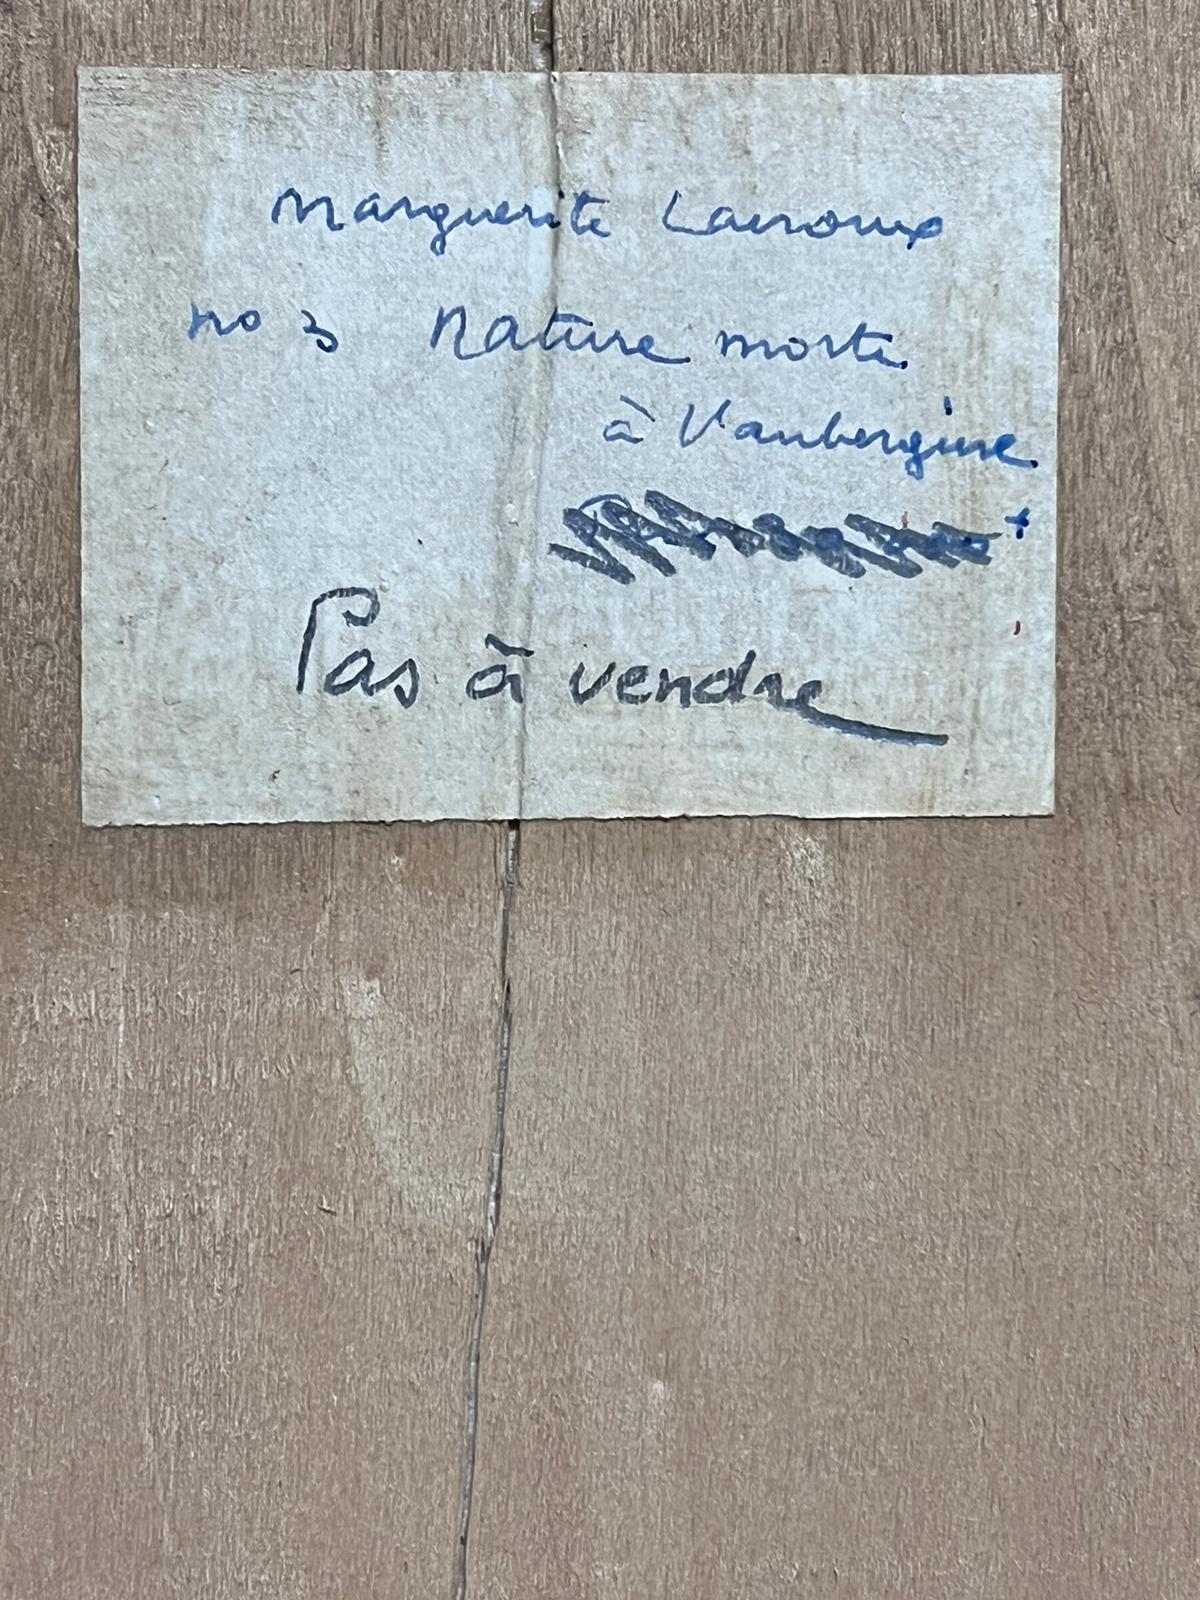 Marguerite Lacroux
no 3 Nature morte
à l'aubergine
Pas à vendre